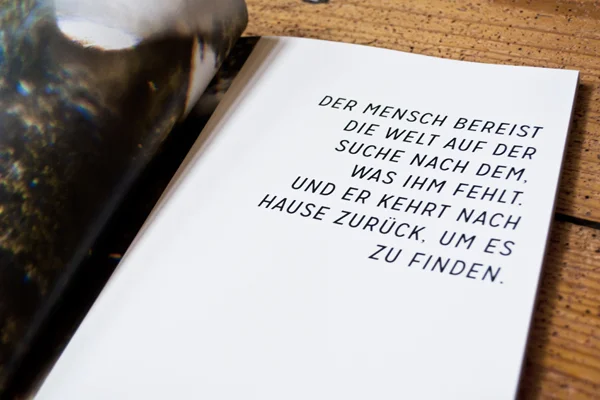 DER MENSCH BEREIST
DIE WELT AUF DER
SUCHE NACH DEM,
WAS IHM FEHLT.
UND ER KEHRT NACH
HAUSE ZURÜCK, UM ES
ZU FINDEN.